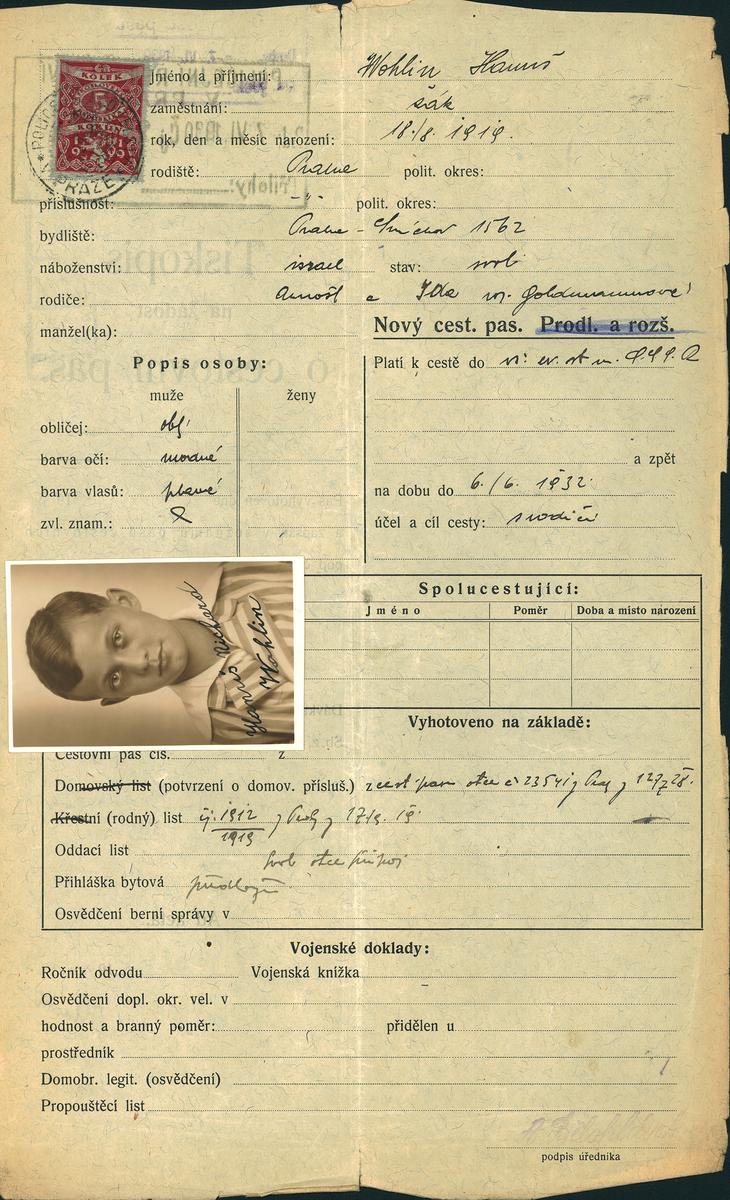 KOLEK
5
KORUN
Jméno a příjmení: Wohlin Hanuš
zaměstnání: žák
rok, den a měsíc narození: 18./8. 1919.
rodiště: Praha polit. okres:
příslušnost: -"- polit. okres:
bydliště: Praha - Smíchov 1562
náboženství: israel stav: svob
rodiče: Arnošt a Ida roz. Goldmannová
manžel(ka):
Nový cest. pas. Prodl. a rozš.
Popis osoby:
muže ženy
obličej: obl.
barva očí: modré
barva vlasů: plavé
zvl. znam.:
Platí k cestě do
a zpět
na dobu do 6./6. 1932.
účel a cíl cesty: s rodiči
Hanuš Richard
Wohlin
Spolucestující:
Jméno Poměr Doba a místo narození
Vyhotoveno na základě:
Cestovní pas čís. z
Domovský list (potvrzení o domov. přísluš.) z cest. pasu otce č 23541
Křestní (rodný) list čj. 1912/1919
Oddací list
svol otce
Přihláška bytová předloži
Osvědčení berní správy v
Vojenské doklady:
Ročník odvodu Vojenská knížka
Osvědčení dopl. okr. vel. v
hodnost a branný poměr: přidělen u
prostředník
Domobr. legit. (osvědčení)
Propouštěcí list
podpis úředníka